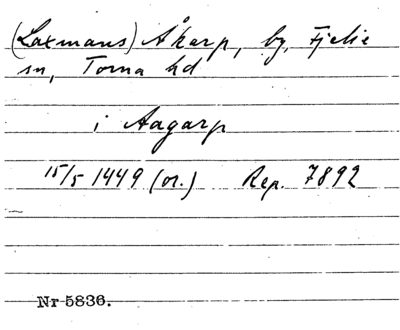 (Laxmans) Åkarp, by, Fjelie
sn, Torna hd
i Aagarp
15/5 1449 (or.) Rep. 7892
Nr 5836.